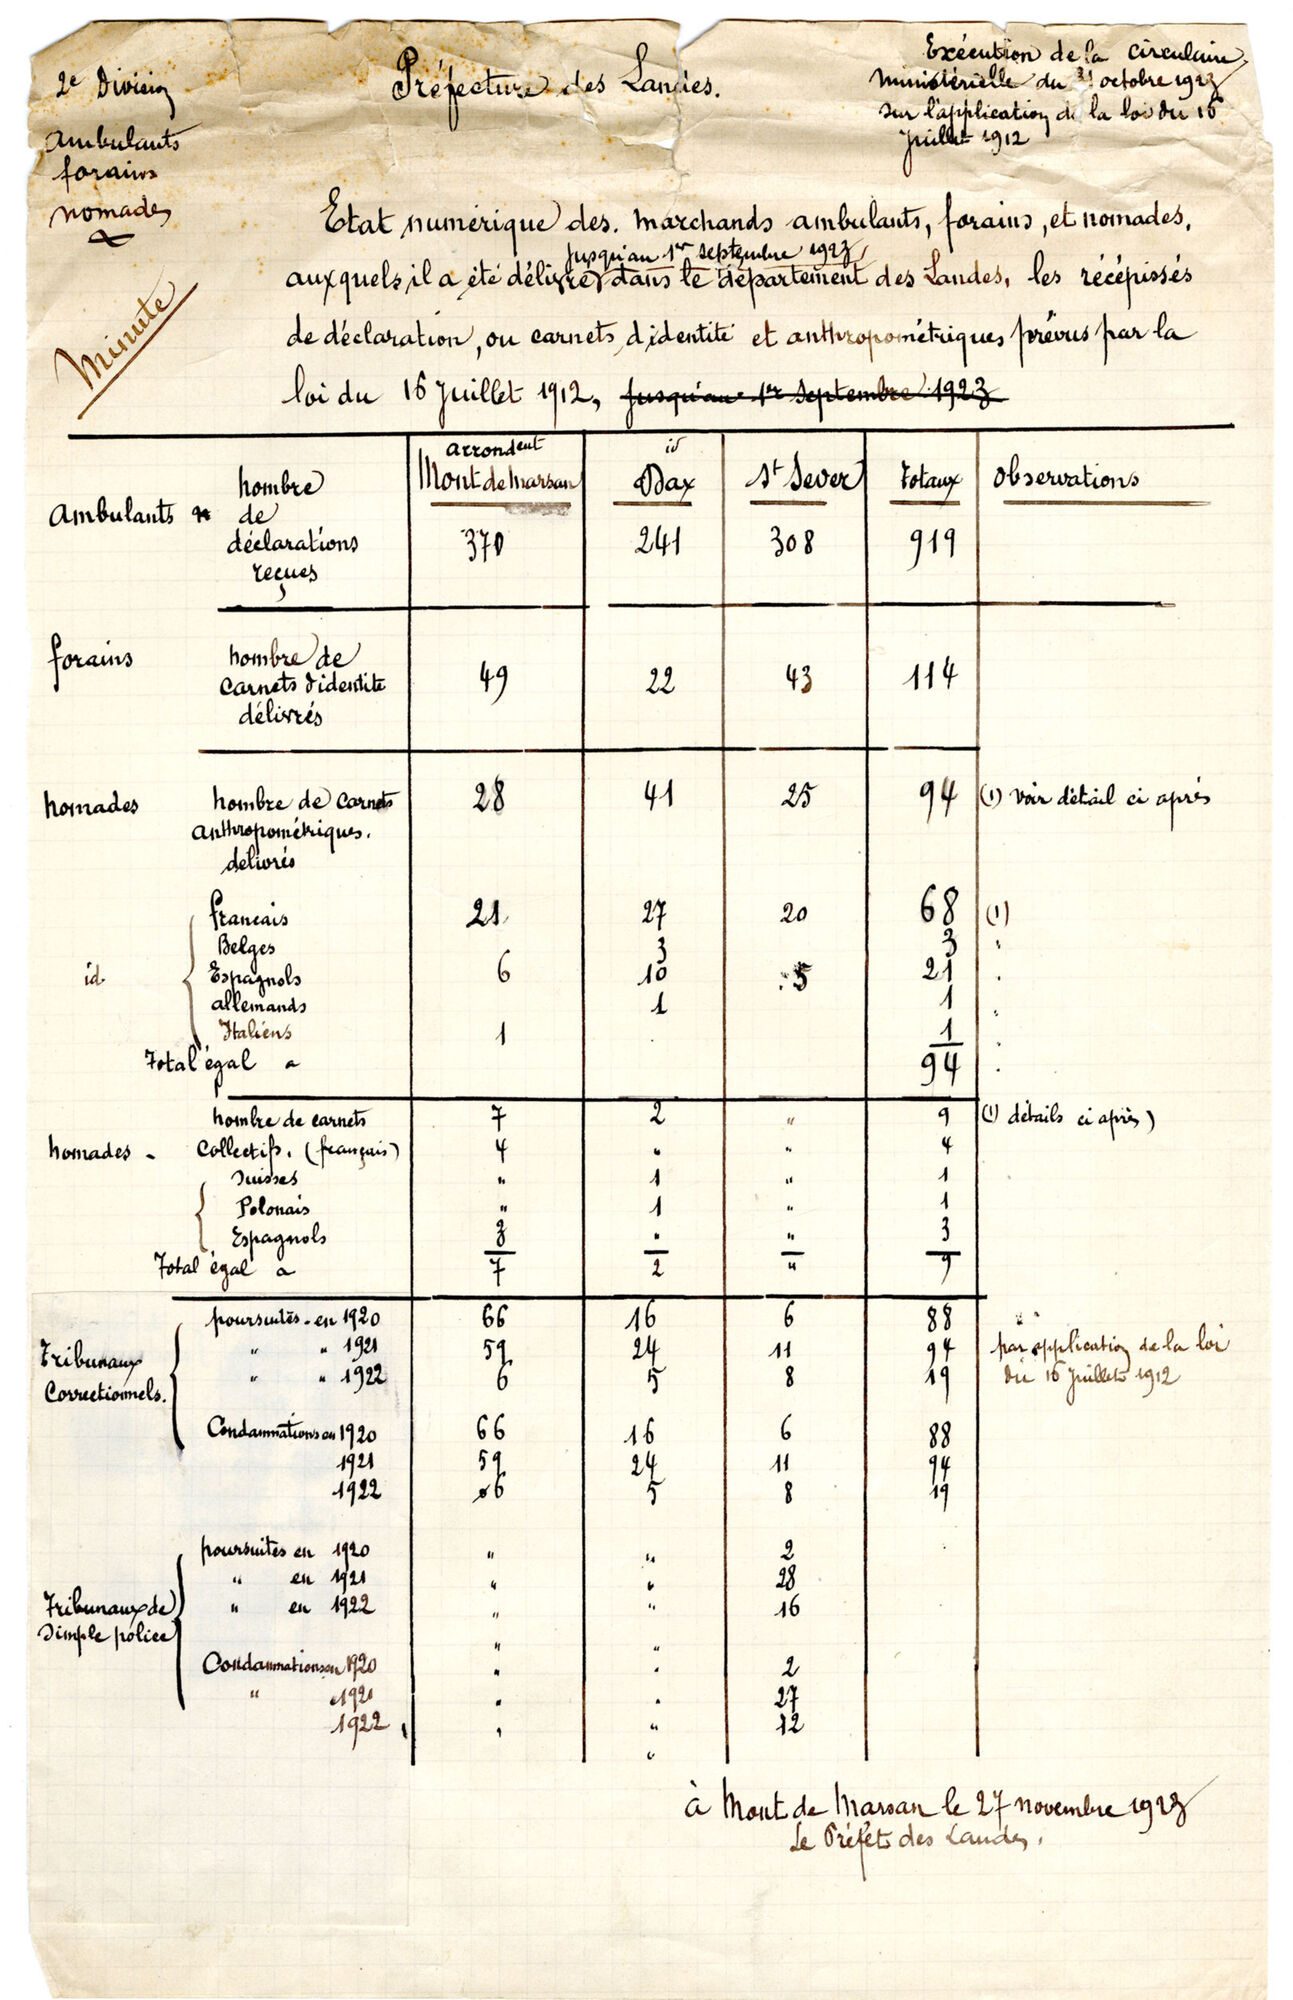 2e Division
Préfecture des Landes.
Exécution de la circulaire
Ministérielle du 31 octobre 1923
sur l'application de la loi du 16
Juillet 1912
Ambulants
forains
nomades
Minute
Etat numérique des marchands ambulants, forains, et nomades,
Jusqu'au 1er septembre 1923
auxquels il a été délivré dans le département des Landes, les récépissés
de déclaration, ou carnets d'identité et anthropométriques prévus par la
loi du 16 Juillet 1912, Jusqu'au 1er Septembre 1923
arrondent id
Mont de Marsan Dax St Sever Totaux Observations
Ambulants nombre
de
déclarations 370 241 308 919
reçues
forains nombre de
carnets d'identité 49 22 43 114
délivrés
nomades nombre de carnets 28 41 25 94 (1) voir détail ci après
anthropométriques.
délivrés
français 21 27 20 68 (1)
Belges 3 3 "
id. Espagnols 6 10 5 21 "
allemands 1 1 "
Italiens 1 1 "
Total égal a 94 "
nombre de carnets 7 2 " 9 (1) détails ci après)
nomades - Collectifs. (français) 4 " " 4
Suisses " 1 " 1
Polonais " 1 " 1
Espagnols 3 " " 3
Total égal a 7 2 " 9
Tribunaux
Correctionnels.
poursuites - en 1920 66 16 6 88
" " 1921 59 24 11 94 par application de la loi
" " 1922 6 5 8 19 du 16 Juillet 1912
Condamnations en 1920 66 16 6 88
1921 59 24 11 94
1922 6 5 8 19
Tribunaux de
simple police
poursuites en 1920 " " 2
" en 1921 " " 28
" en 1922 " " 16
" "
Condamnations en 1920 " " 2
" 1921 " " 27
1922 " " 12
"
à Mont de Marsan le 27 novembre 1923
Le Préfet des Landes.